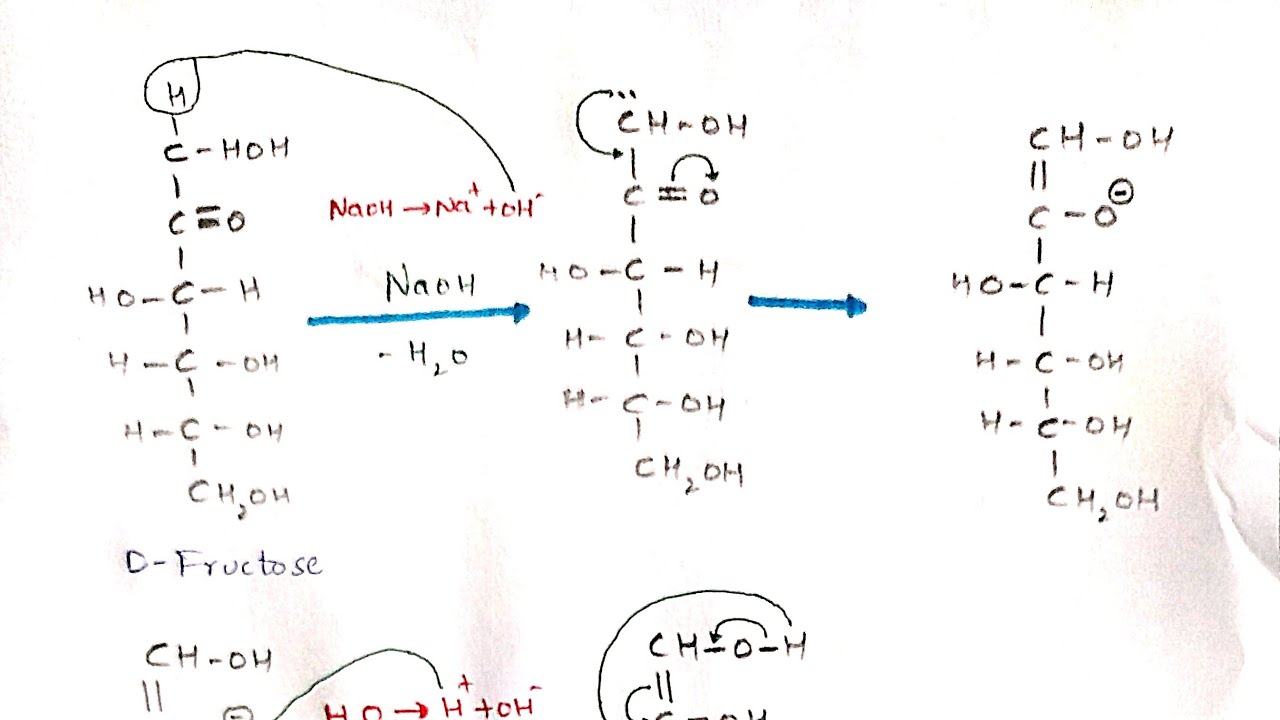 H
C - HOH
C = O
HO - C - H
H - C - OH
H - C - OH
CH₂OH
D-Fructose
NaOH → Na⁺ + OH⁻
NaOH
- H₂O
..
CH - OH
C = O
HO - C - H
H - C - OH
H - C - OH
CH₂OH
CH - OH
||
C - O⊖
HO - C - H
H - C - OH
H - C - OH
CH₂OH
CH - OH
||
⊖
H₂O → H⁺ + OH⁻
CH - O - H
||
C - OH